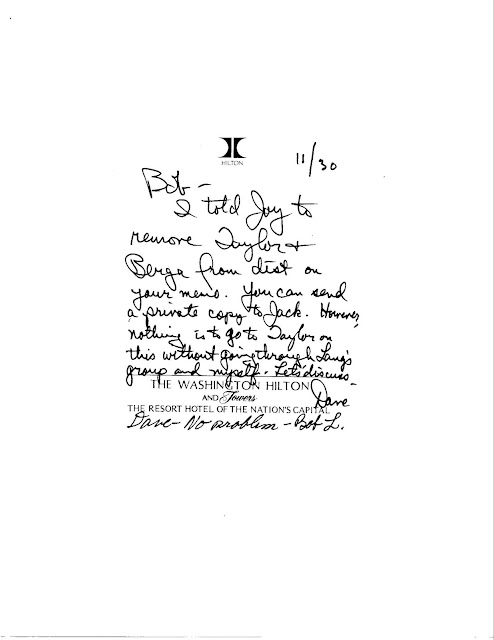 HILTON
11/30
Bob –
I told Joy to
remove Taylor +
Berga from dist on
your memo. You can send
a private copy to Jack. However,
nothing is to go to Taylor on
this without going through Lang's
group and myself. Let's discuss –
Dave
THE WASHINGTON HILTON
AND Towers
THE RESORT HOTEL OF THE NATION'S CAPITAL
Dave – No problem – Bob L.